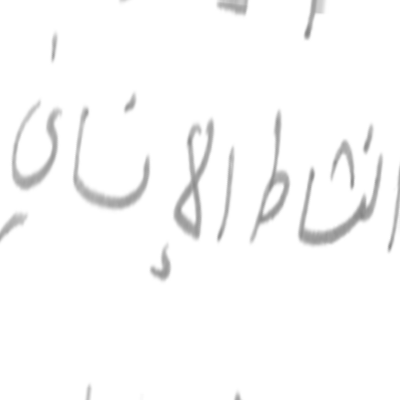 النشاط الإنساني